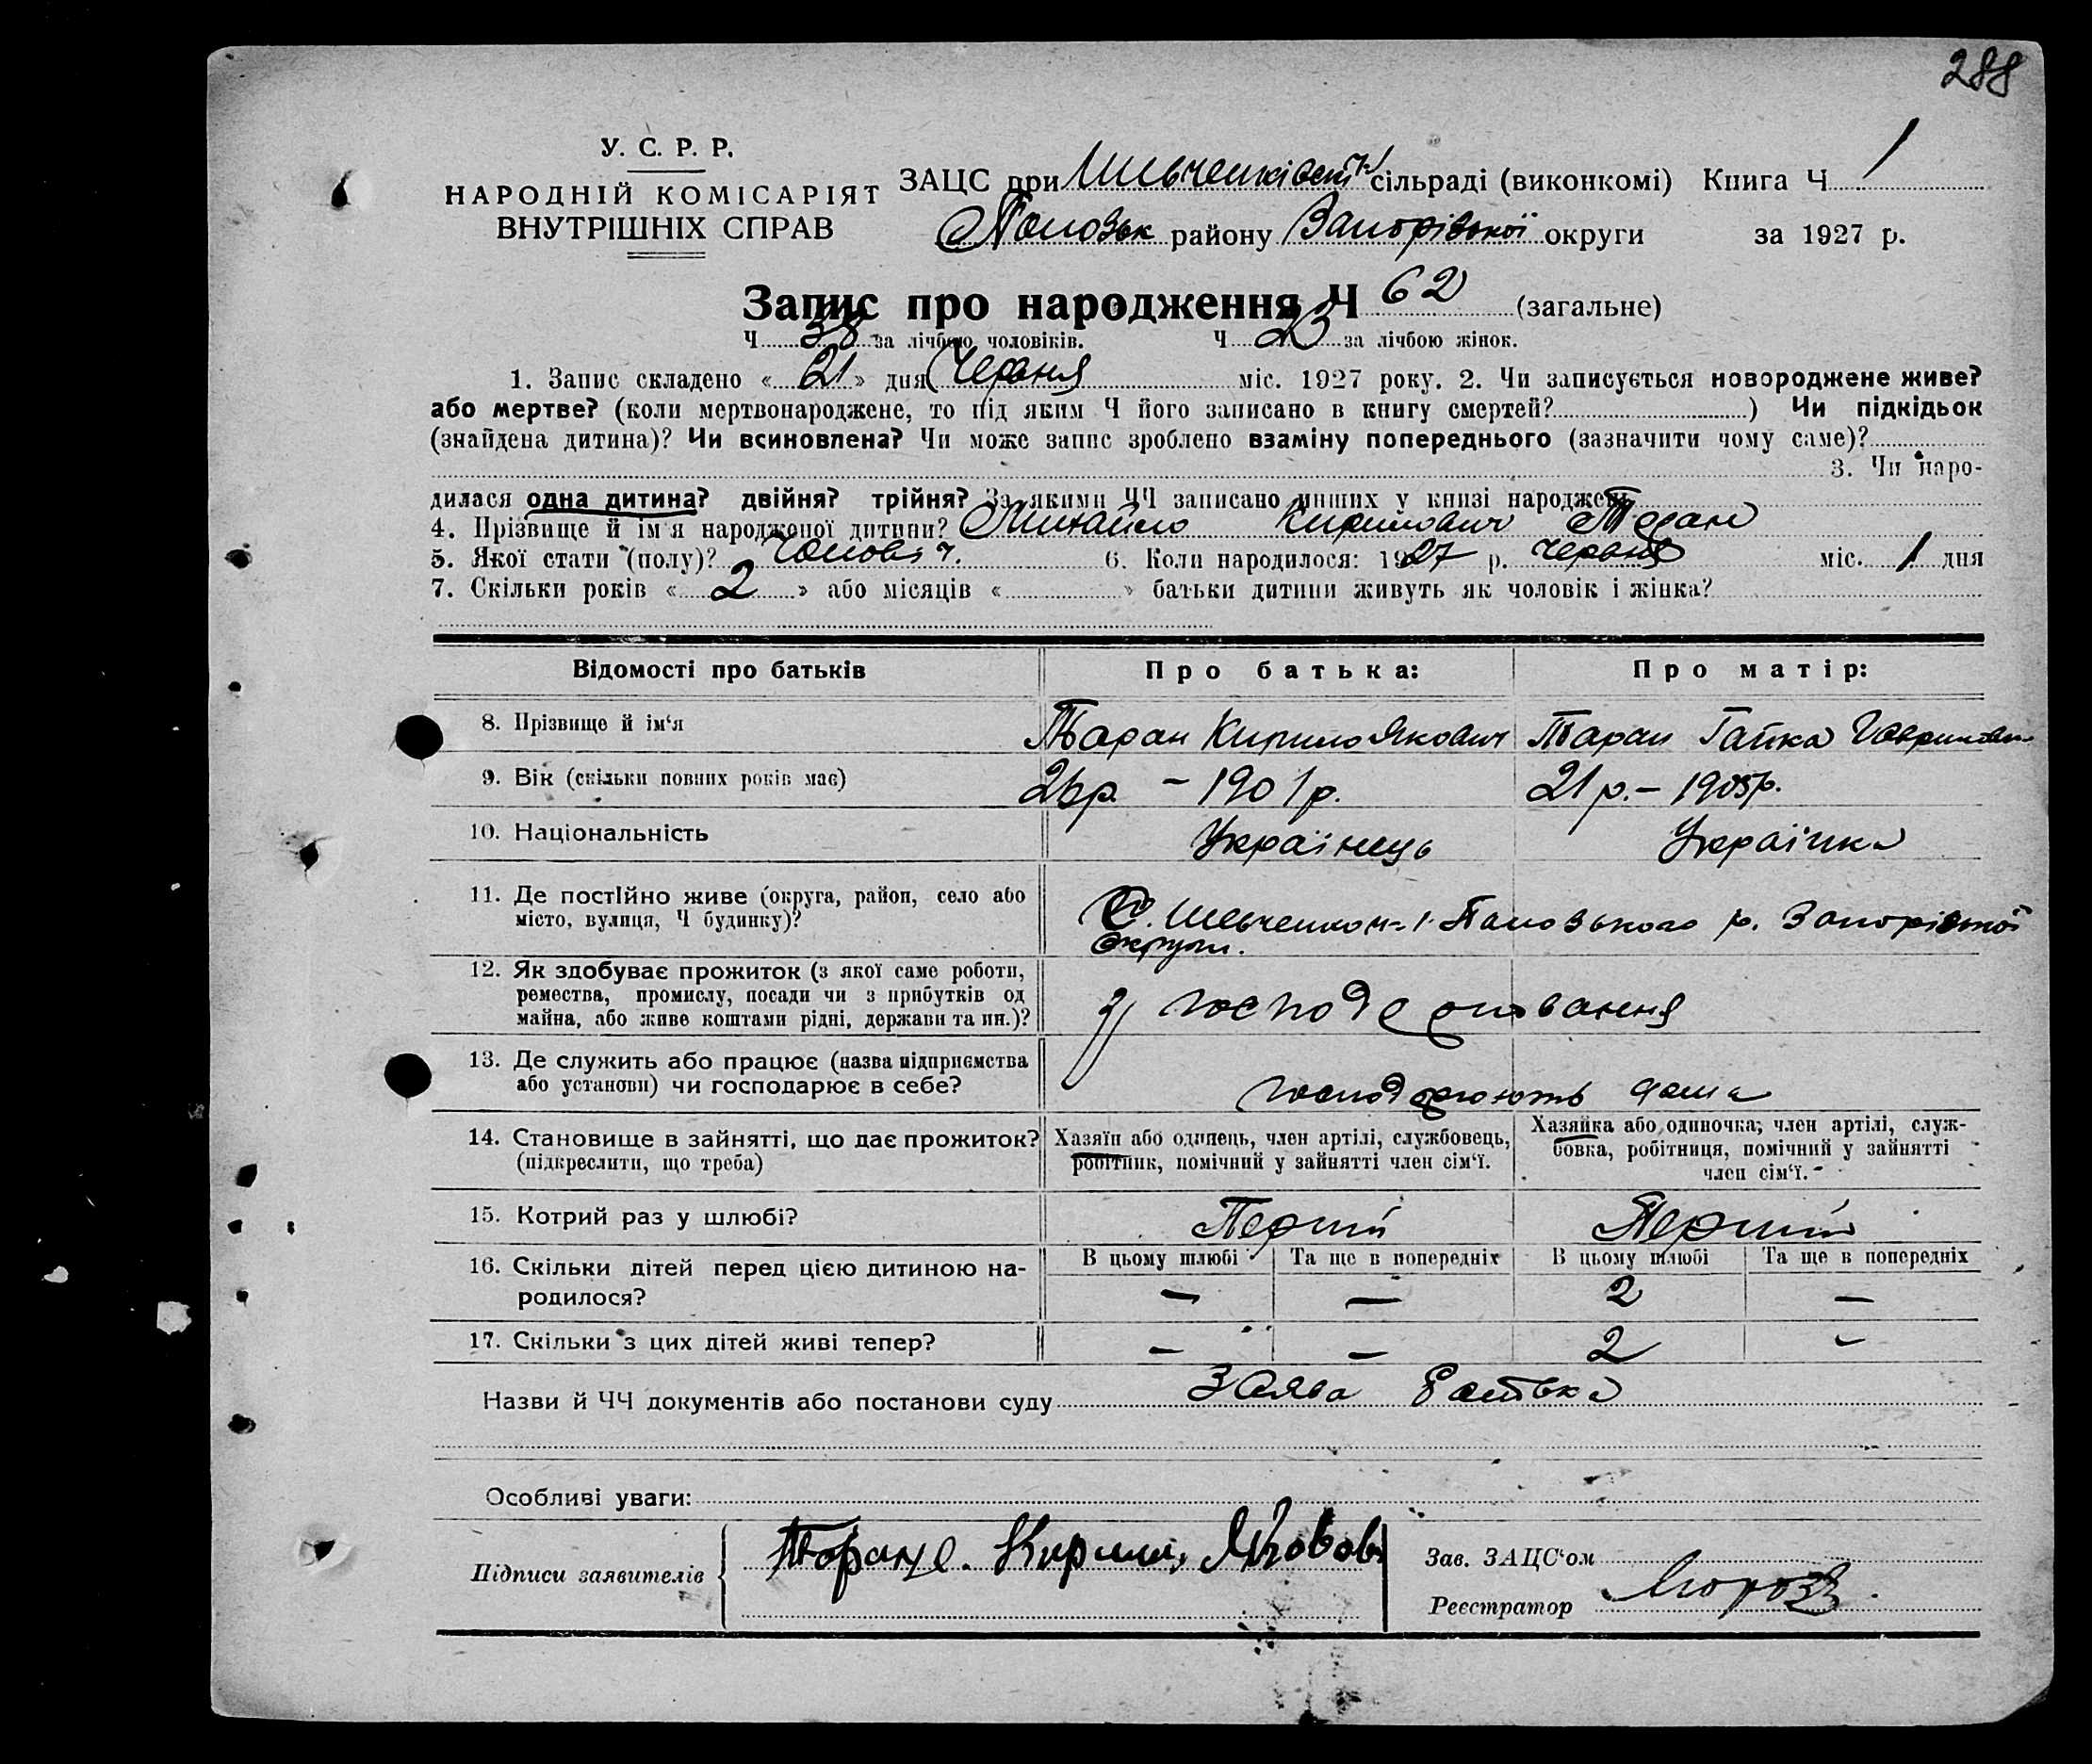 288
У. С. Р. Р.
НАРОДНІЙ КОМІСАРІЯТ
ВНУТРІШНІХ СПРАВ
ЗАЦС при сільраді (виконкомі) Книга Ч 1
району Запорізької округи за 1927 р.
Запис про народження Ч 62 (загальне)
Ч 38 за лічбою чоловіків. Ч 23 за лічбою жінок.
1. Запис складено « 21 » дня Червня міс. 1927 року. 2. Чи записується новороджене живе?
або мертве? (коли мертвонароджене, то під яким Ч його записано в книгу смертей? ) Чи підкідьок
(знайдена дитина)? Чи всиновлена? Чи може запис зроблено взаміну попереднього (зазначити чому саме)?
3. Чи наро-
дилася одна дитина? двійня? трійня? За якими ЧЧ записано инших у книзі народжень
4. Прізвище й ім'я народженої дитини? Михайло Кирилович Таран
5. Якої стати (полу)? Чоловіч. 6. Коли народилося: 1927 р. червня міс. 1 дня
7. Скільки років « 2 » або місяців « » батьки дитини живуть як чоловік і жінка?
Відомості про батьків Про батька: Про матір:
8. Прізвище й ім‘я Таран Кирило Якович Таран Гапка
9. Вік (скільки повних років має) р. – 1901 р. 21 р. – 1905 р.
10. Національність Українець Українка
11. Де постійно живе (округа, район, село або
місто, вулиця, Ч будинку)? р. Запорізької
округи.
12. Як здобуває прожиток (з якої саме роботи,
ремества, промислу, посади чи з прибутків од
майна, або живе коштами рідні, держави та ин.)?
з господарювання
13. Де служить або працює (назва підприємства
або установи) чи господарює в себе?
господарюють дома
14. Становище в зайнятті, що дає прожиток?
(підкреслити, що треба)
Хазяїн або одинець, член артілі, службовець,
робітник, помічний у зайнятті член сім‘ї.
Хазяйка або одиночка; член артілі, служ-
бовка, робітниця, помічний у зайнятті
член сім‘ї.
15. Котрий раз у шлюбі? Перший Перший
16. Скільки дітей перед цією дитиною на-
родилося?
В цьому шлюбі Та ще в попередніх В цьому шлюбі Та ще в попередніх
— — 2 —
17. Скільки з цих дітей живі тепер? — — 2 –
Назви й ЧЧ документів або постанови суду Заява батька
Особливі уваги:
Підписи заявителів
Зав. ЗАЦС‘ом
Реєстратор Мороз